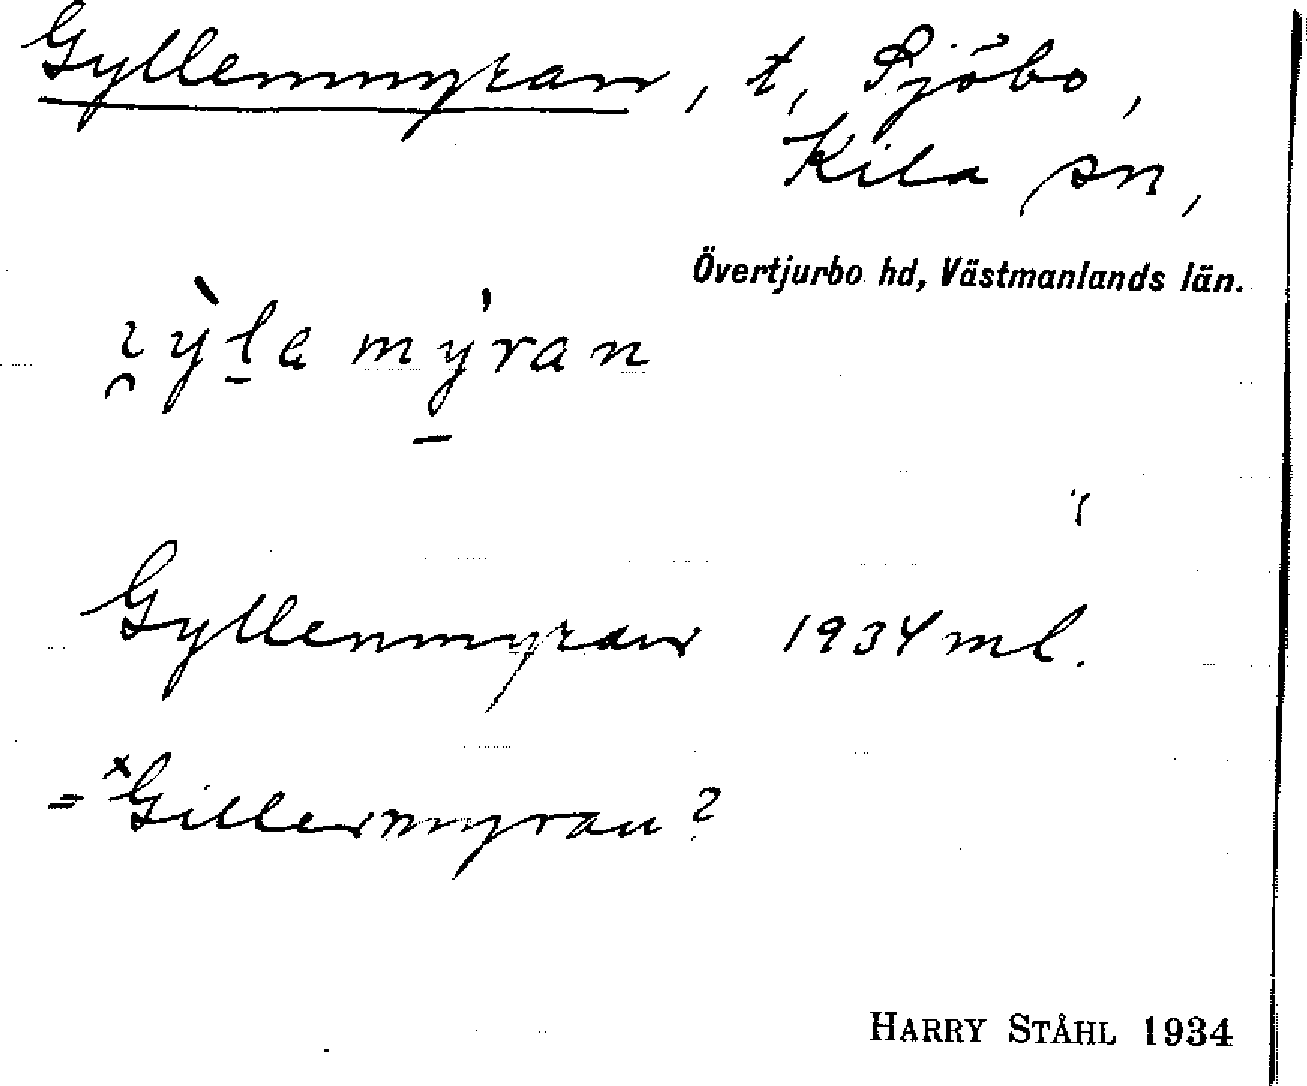 Gyllenmyran, t, Sjöbo,
Kila sn,
Övertjurbo hd, Västmanlands län.
myran
Gyllenmyran 1934 ml.
= ˣGillermyran?
HARRY STÅHL 1934